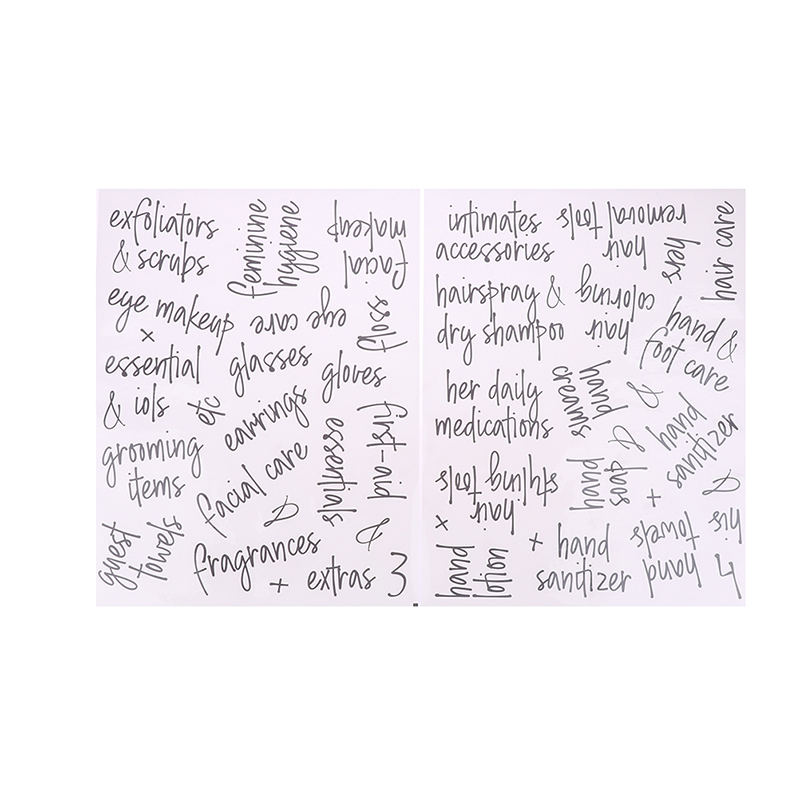 exfoliators
& scrubs
feminine
hygiene
facial
makeup
eye makeup
x
eye care
floss
essential
& iols
glasses
gloves
etc
earrings
first-aid
essentials
grooming
items
facial care
&
&
guest
towels
fragrances
+
extras
3
intimates
accessories
hair
removal tools
hers
hair care
hairspray &
dry shampoo
hair
coloring
hand &
foot care
her daily
medications
hand
creams
&
&
hand
sanitizer
hair
styling tools
x
hand
soap
+
&
his
hand
lotion
+
hand
sanitizer
hand
towels
4